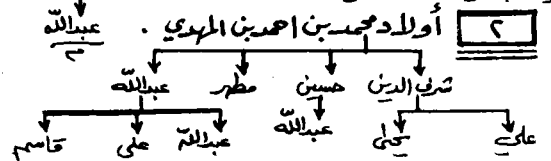 عبدالله
٢ أولاد محمد بن احمد بن المهدي .
شرف الدين حسين مطهر عبدالله
علي يحيى عبدالله عبدالله علي قاسم